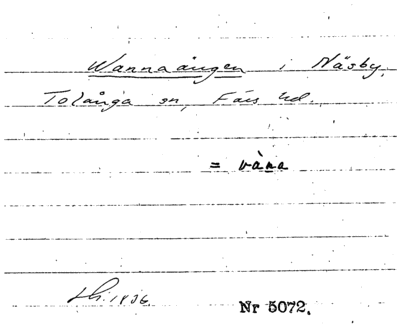 Wannaängen i Näsby,
Tolånga sn, Färs hd.
= vàna
1936
Nr 5072.